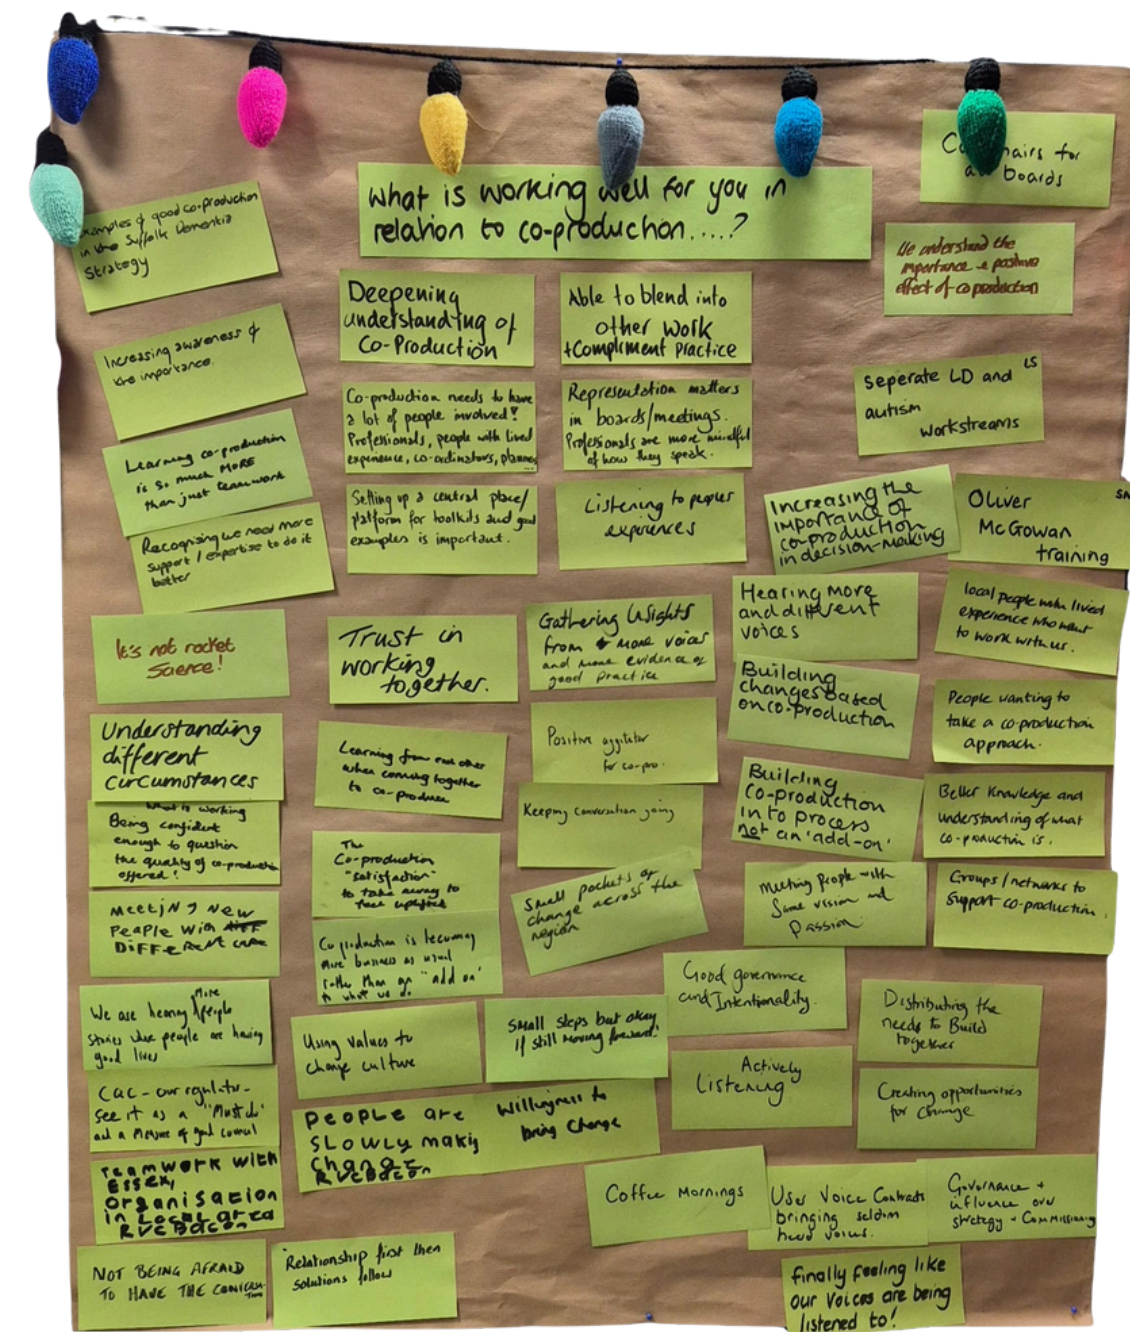 What is working well for you in
relation to co-production....?
hairs for
boards
examples of good co-production
in the Suffolk Dementia
Strategy
We understand the
importance & positive
effect of co production
Deepening
understanding of
Co-Production
Able to blend into
other work
+ Compliment practice
Increasing awareness of
the importance.
Co-production needs to have
a lot of people involved!
Professionals, people with lived
experience, co-ordinators, planners
Representation matters
in boards/meetings.
Professionals are more mindful
of how they speak.
Seperate LD and LS
autism
workstreams
Learning co-production
is so much MORE
than just teamwork
Setting up a central place/
platform for toolkits and good
examples is important.
Listening to peoples
experiences
Increasing the
importance of
co-production
in decision-making
Oliver
McGowan
training
Recognising we need more
support / expertise to do it
better
Hearing more
and different
voices
local people with lived
experience who want
to work with us.
It's not rocket
Science!
Trust in
working
together.
Gathering insights
from more voices
and more evidence of
good practice
Building
changes based
on co-production
People wanting to
take a co-production
approach.
Understanding
different
circumstances
Learning from each other
when coming together
to co-produce
Positive agitator
for co-pro.
Building
Co-production
in to process
not an 'add-on'
Better Knowledge and
understanding of what
co-production is.
what is working
Being confident
enough to question
the quality of co-production
offered!
The
Co-production
"satisfaction"
to take away to
feel uplifted
Keeping conversation going
Small pockets of
change across the
region
Meeting People with
Same vision and
passion
Groups / networks to
Support co-production.
MeetiNg New
PeaPle With
DiFFeReNt
Co production is becoming
more business as usual
rather than an "add on"
to what we do
Good governance
and Intentionality.
We are hearing more people
stories where people are having
good lives
Using values to
change culture
Small steps but okay
if still moving forward!
Distributing the
needs to Build
together
Actively
Listening
CQC - our regulator -
see it as a "Must do"
and a Measure of good council
PeOPLe aRe
SLOWLY makig
Change
RVCBacon
Willingness to
bring Change
Creating opportunities
for Change
Teamwork with
ESSex,
Organisation
in Local area
RVCBacon
Coffee Mornings
User Voice Contracts
bringing seldom
heard voices.
Governance +
influence over
strategy + Commissioning
NOT BEING AFRAID
TO HAVE THE CONVERSATION
Relationship first then
solutions follow
Finally feeling like
our Voices are being
listened to!